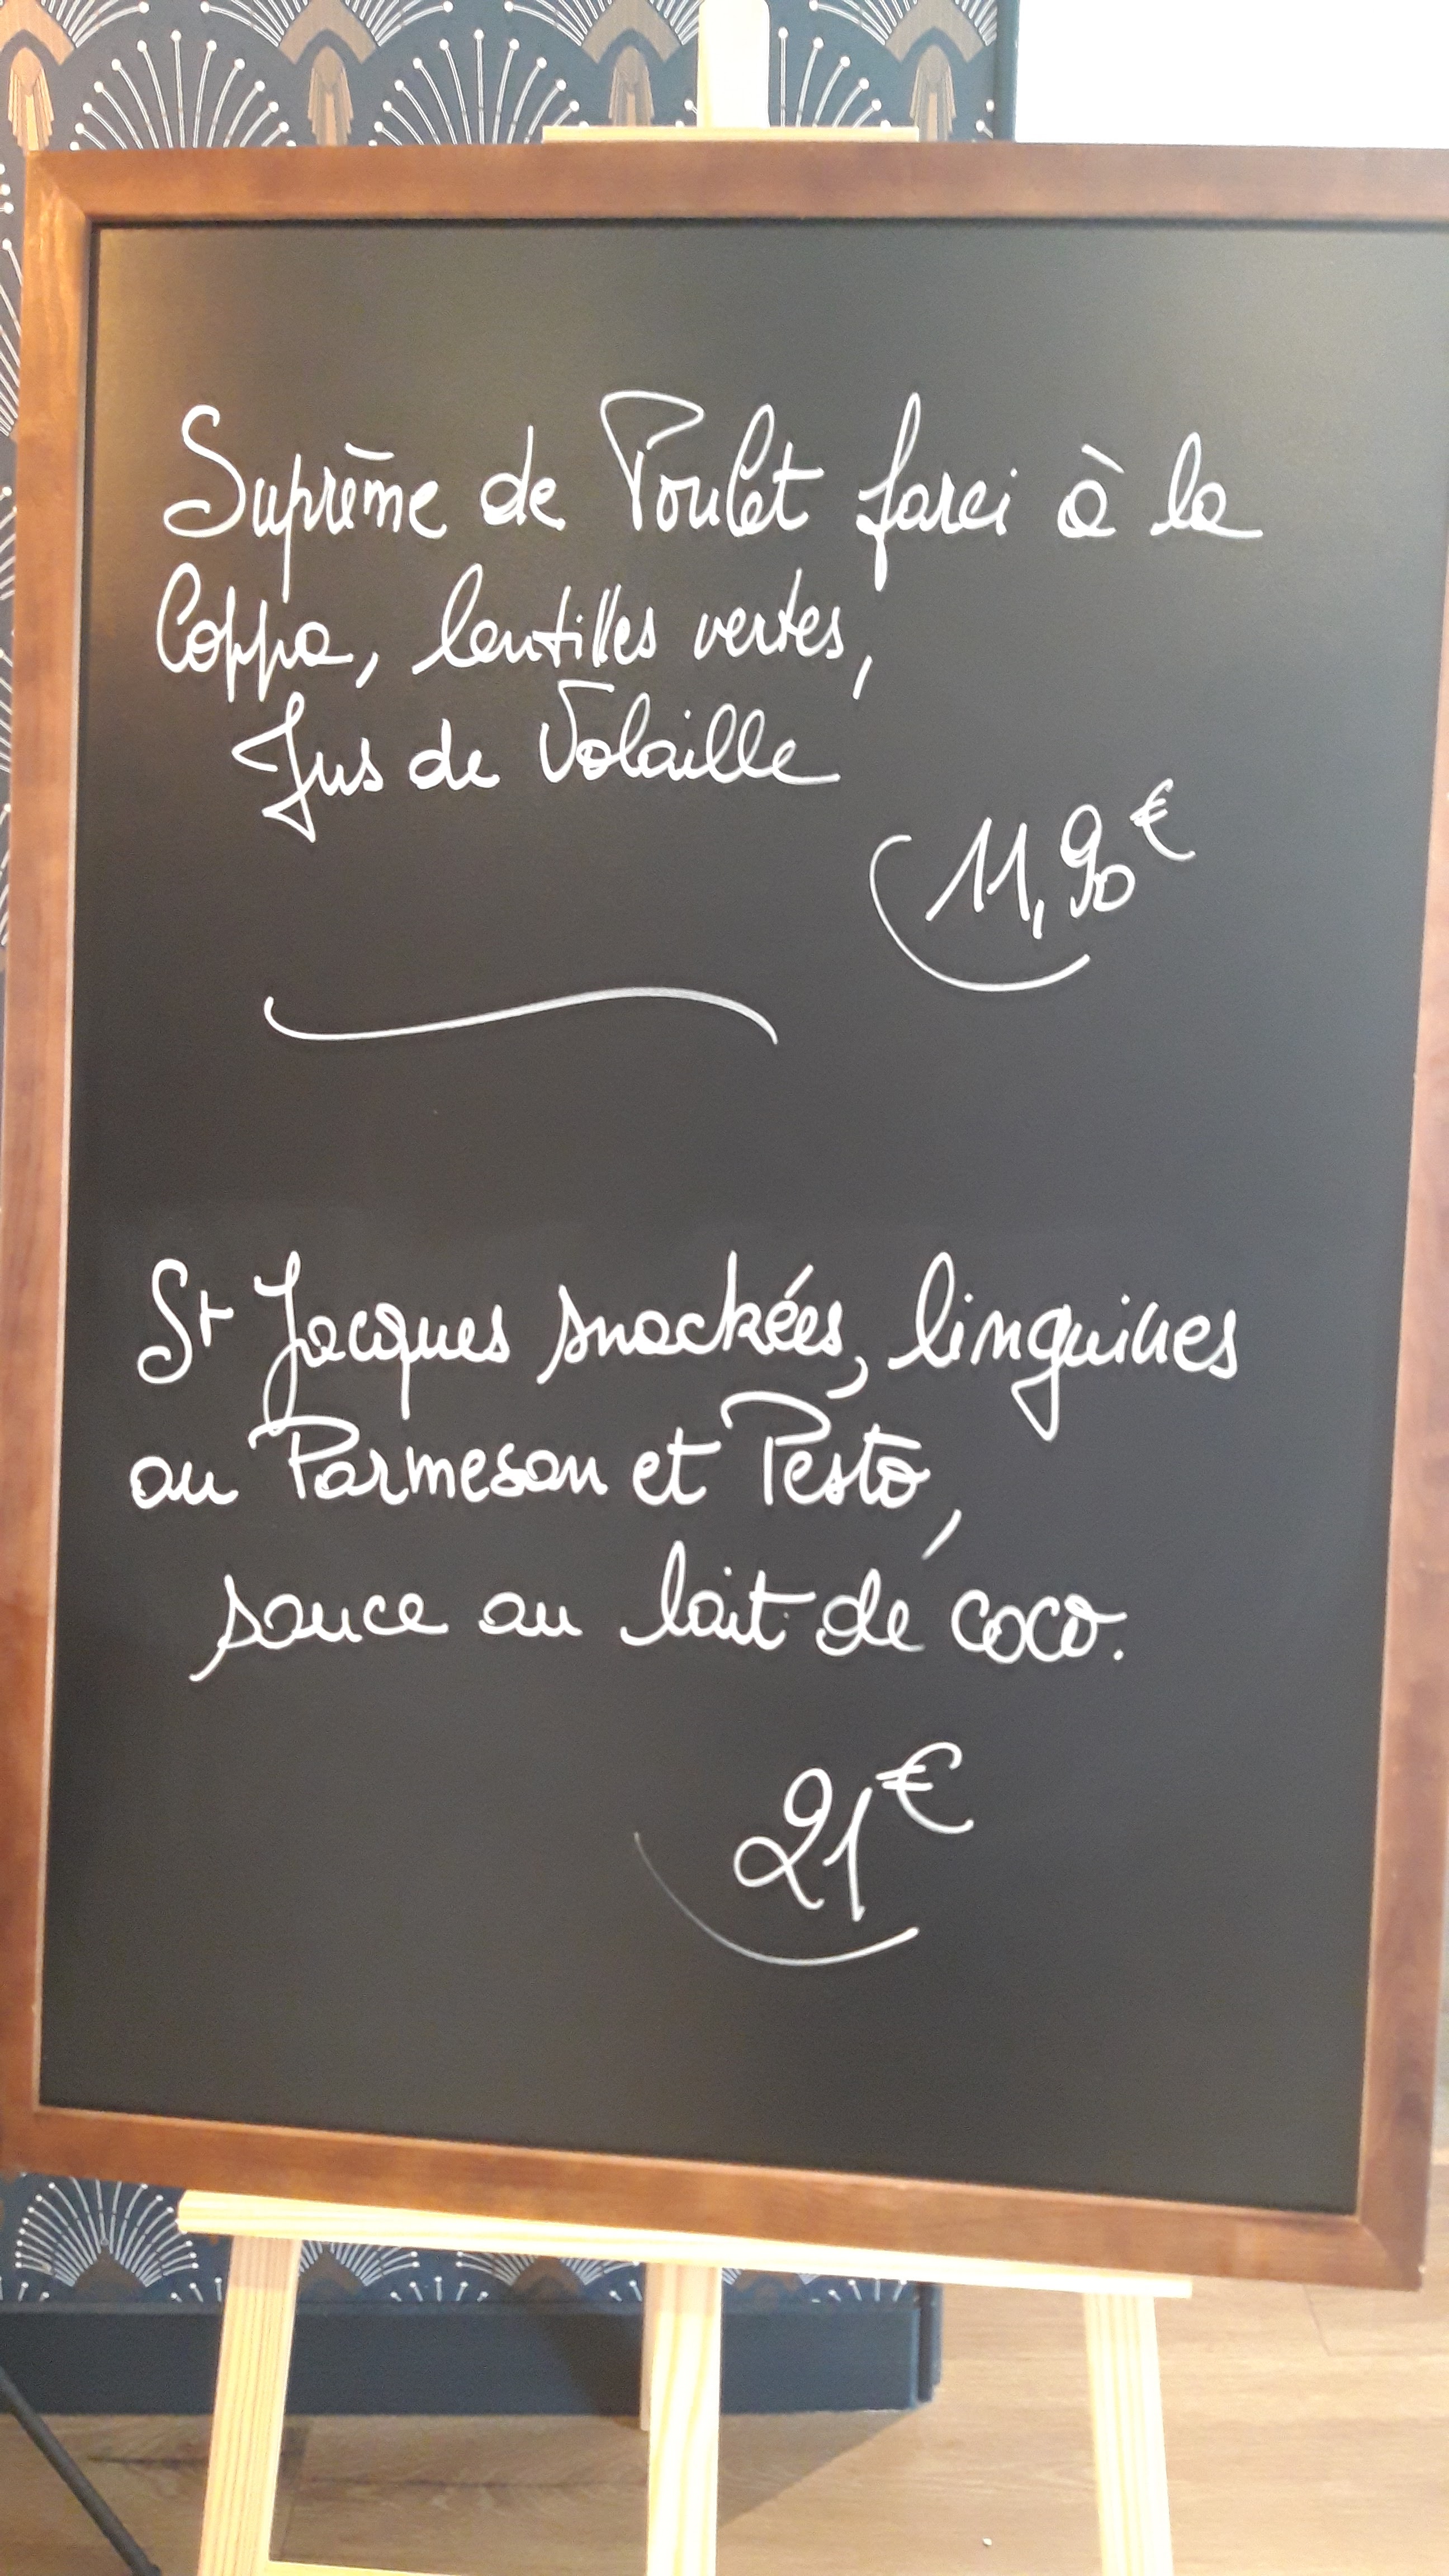 Suprême de Poulet farci à la
Coppa, lentilles vertes,
Jus de Volaille
11,90€
St Jacques snackées, linguines
au Parmesan et Pesto,
sauce au lait de coco.
21€